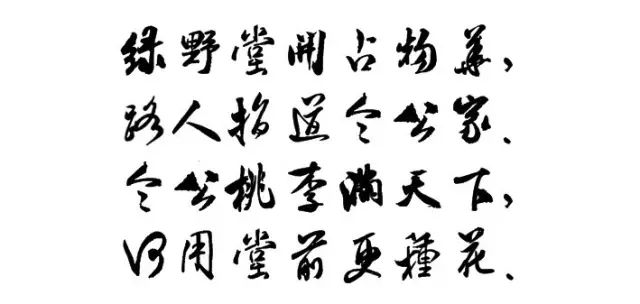 绿野堂開占物华，
路人指道令公家.
令公桃李满天下，
何用堂前更種花.